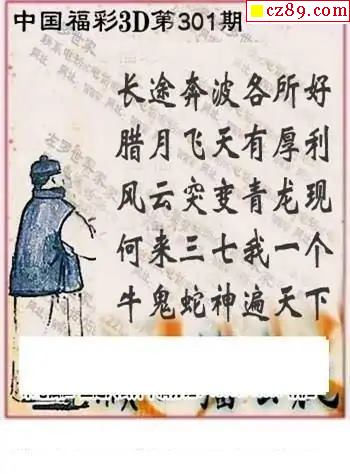 cz89.com
中国福彩3D第301期
长途奔波各所好
腊月飞天有厚利
风云突变青龙现
何来三七我一个
牛鬼蛇神遍天下